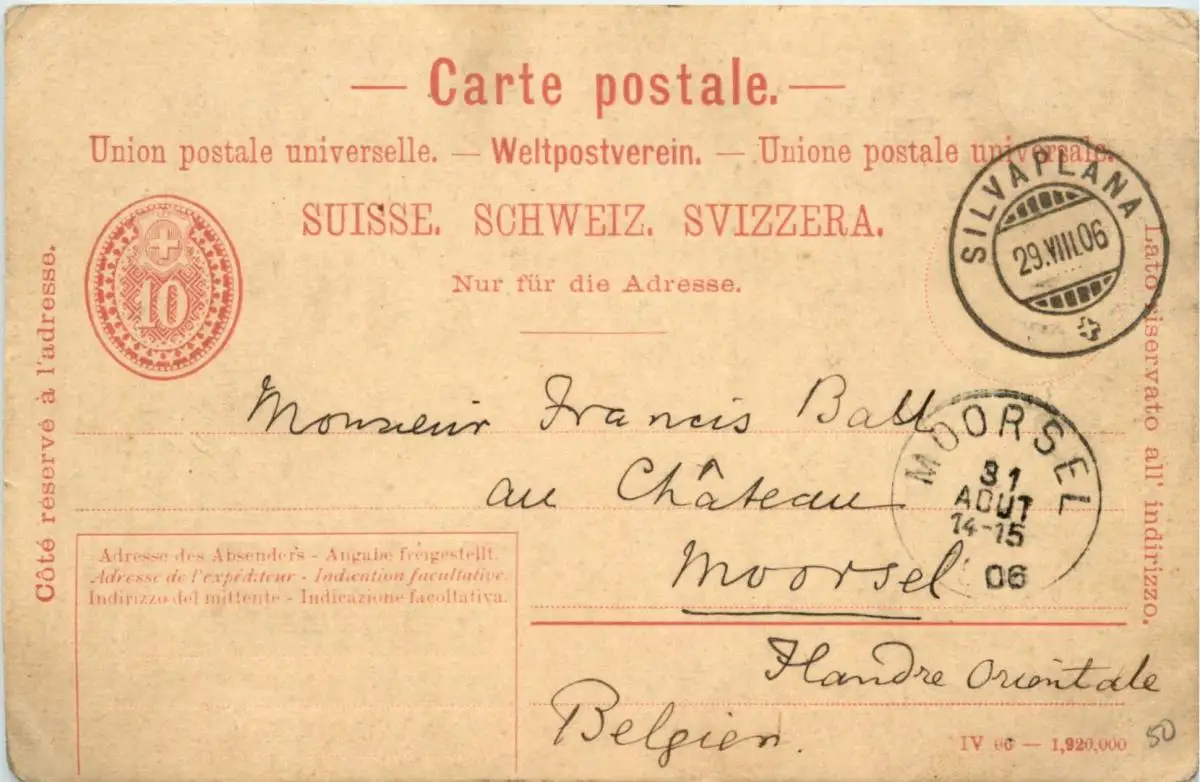 — Carte postale. —
Union postale universelle. — Weltpostverein. — Unione postale universale.
SUISSE. SCHWEIZ. SVIZZERA.
Nur für die Adresse.
10
Côté réservé à l'adresse.
Lato riservato all' indirizzo.
SILVAPLANA
29.VIII.06
Monsieur Francis Ball
au Château
Moorsel
Flandre Orientale
Belgien.
MOORSEL
31
AOUT
14-15
06
Adresse des Absenders - Angabe freigestellt.
Adresse de l'expéditeur - Indication facultative.
Indirizzo del mittente - Indicazione facoltativa.
IV 06 — 1,920,000
50